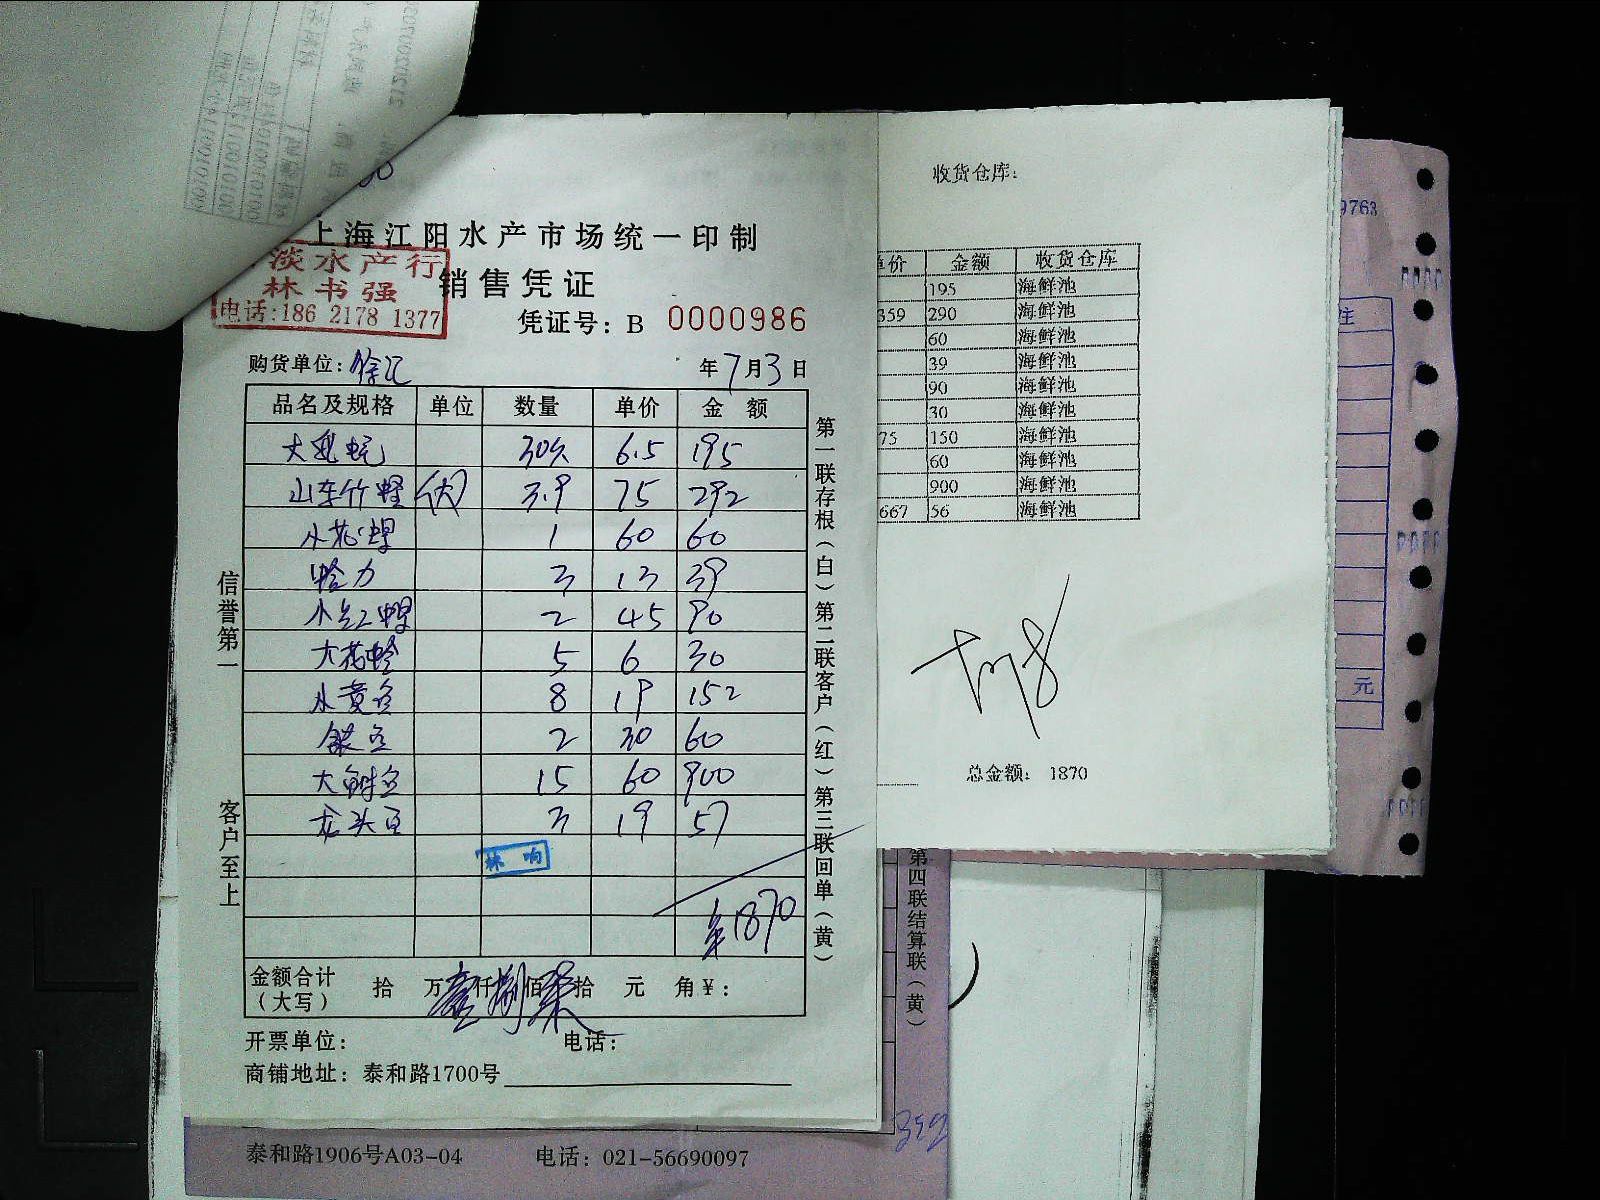 上海江阳水产市场统一印制
淡水产行
林书强
电话:186 2178 1377
销售凭证
凭证号: B 0000986
购货单位: 徐汇 年7月3日
品名及规格 单位 数量 单价 金额
30 6.5 195
山东竹蛏 3.9 75 292
小花螺 1 60 60
蛤力 3 13 39
小红螺 2 45 90
大花蛤 5 6 30
小黄鱼 8 19 152
银鱼 2 30 60
大鲜鱼 15 60 900
龙头鱼 3 19 57
林响
1870
金额合计(大写) 拾 万壹仟捌佰柒拾 元 角¥:
开票单位: 电话:
商铺地址: 泰和路1700号
信誉第一 客户至上
第一联存根(白)第二联客户(红)第三联回单(黄)
收货仓库:
单价 金额 收货仓库
195 海鲜池
359 290 海鲜池
60 海鲜池
39 海鲜池
90 海鲜池
30 海鲜池
75 150 海鲜池
60 海鲜池
900 海鲜池
667 56 海鲜池
总金额: 1870
9763
注
元
第四联结算联(黄)
泰和路1906号A03-04 电话: 021-56690097